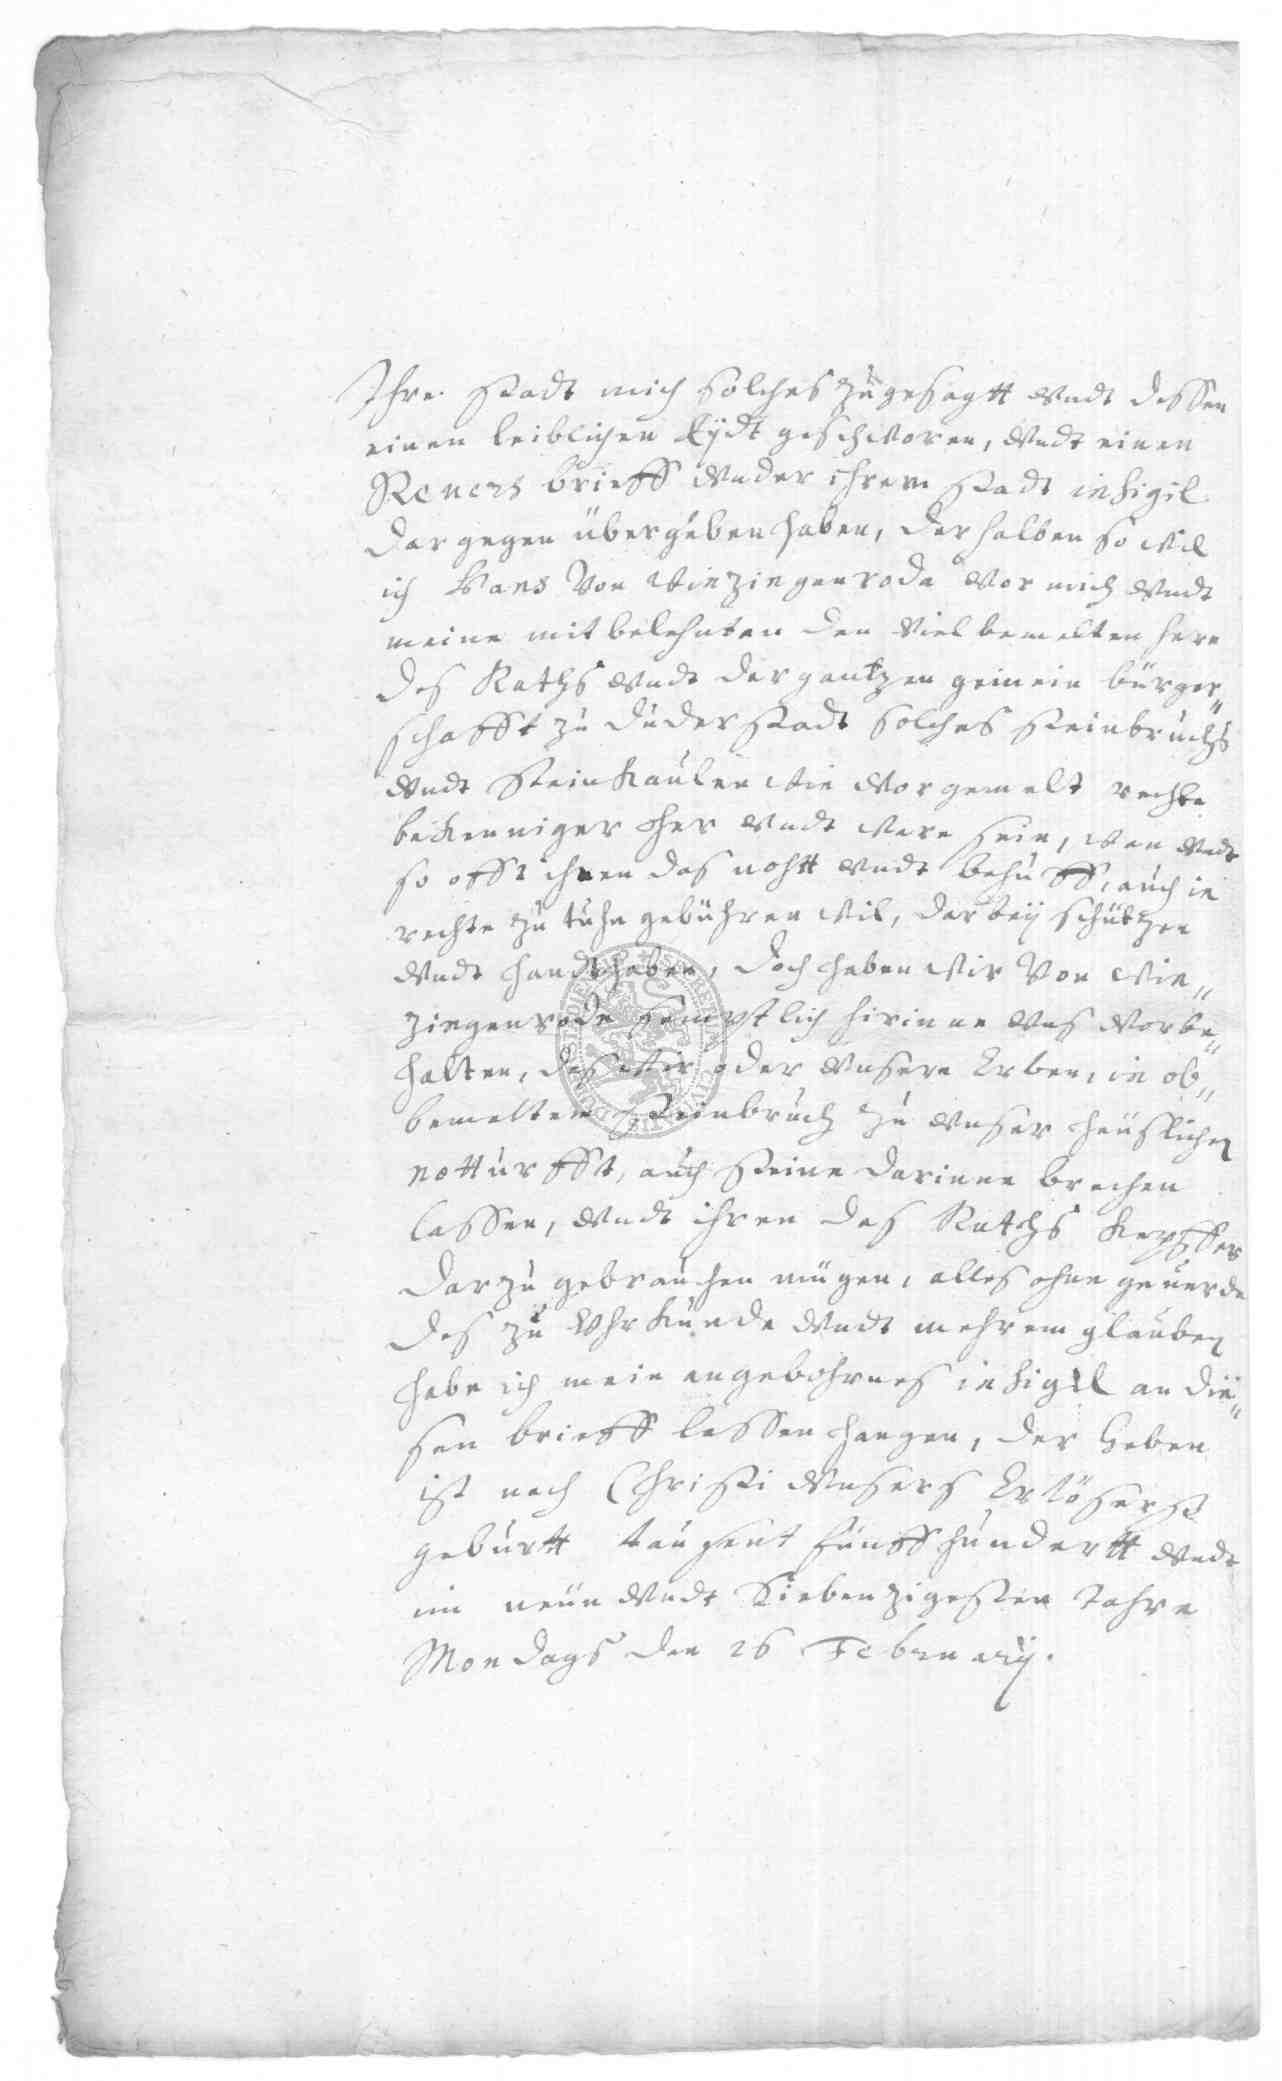 Ihre Stadt mich solches zugesagtt vndt dessen
einen leiblichen Eydt geschworen, vndt einen
Revers brieff vnder ihrem Stadt insigil
dargegen übergeben haben, derhalben so wil
ich Hans von Winzingenroda vor mich vndt
meine mitbelehnten den vielbemelten hern
des Raths vndt der gantzen gemein bürger„
schafft zu Duderstadt solches Steinbruchs
vndt Steinkaulen wie vorgemelt rechte
bekenniger her vndt were sein, wan vndt
so offt ihnen das nohtt vndt behuff, auch in
rechte zu tuhn gebühren wil, darbey schützen
vndt handthaben, doch haben wir von Win„
zingenrode semptlich hirinne vns vorbe„
halten, das wir oder vnsere Erben, in ob„
bemelten Steinbruch zu vnser heuslichen
notturfft, auch Steine darinne brechen
lassen, vndt ihren des Raths
darzu gebrauchen mügen, alles ohne geuerde
des zu Vhrkunde vndt mehrem glauben
habe ich mein angebohrnes insigil an die„
sen brieff lassen hangen, der Geben
ist nach Christi vnsers Erlösers
geburtt tausent fünffhundertt vndt
im neün vndt Siebenzigesten Jahre
Mondags den 26 February.
SECRETUM CIVITATIS